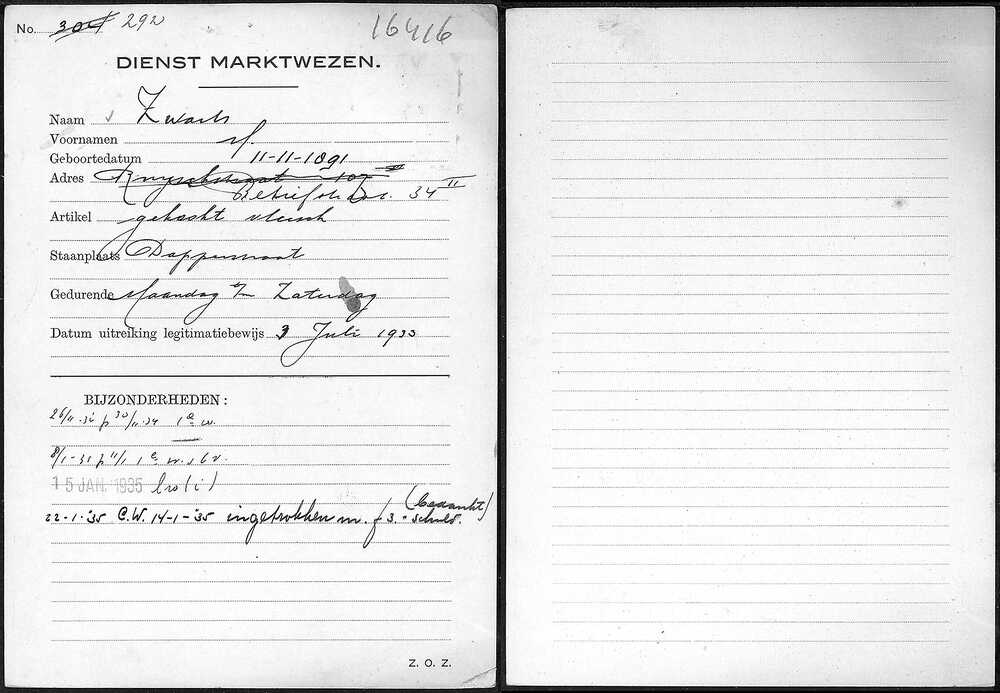 No. 304 292
16416
DIENST MARKTWEZEN.
Naam Zwarts
Voornamen
Geboortedatum 11-11-1891
Adres Ruyschstraat 107 III
34 II
Artikel gehackt vleesch
Staanplaats Dapperstraat
Gedurende Maandag t/m Zaterdag
Datum uitreiking legitimatiebewijs 3 Juli 1933
BIJZONDERHEDEN:
26/11-34 p 30/11-34 1e w.
8/1-35 p 11/1 1e w.
15 JAN. 1935
22-1-'35 C.W. 14-1-'35 ingetrokken m. f 3.- schuld.
(bedankt)
Z. O. Z.